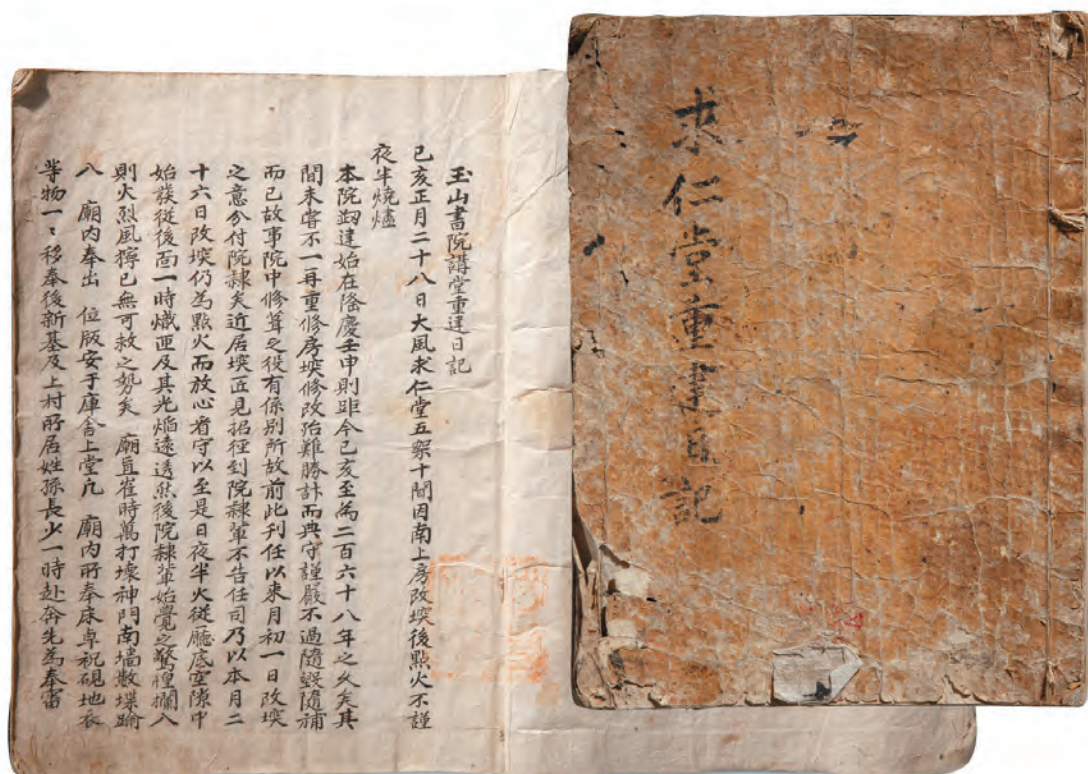 求仁堂重建日記
玉山書院講堂重建日記
己亥正月二十八日大風求仁堂五架十間因南上房改堗後點火不謹
夜半燒燼
本院刱建始在隆慶壬申則距今己亥至爲二百六十八年之久矣其
間未嘗不一再重修房堗修改殆難勝計而典守謹嚴不過隨毁隨補
而已故事院中修葺之役有係別所故前此刊任以來月初一日改堗
之意分付院隷矣近居堗匠見招徑到院隷軰不告任司乃以本月二
十六日改堗仍爲點火而放心看守以至是日夜半火從廳底空隙中
始發從後面一時熾匝及其光焰遠透然後院隷軰始覺之驚惶攔入
則火烈風獰已無可救之勢矣 廟直崔時萬打壞神門南墻散堞踰
入 廟内奉出 位版安于庫舍上堂凢 廟内所奉床卓祝硯地衣
等物一〻移奉後新基及上村所居姓孫長少一時赴奔先爲奉審